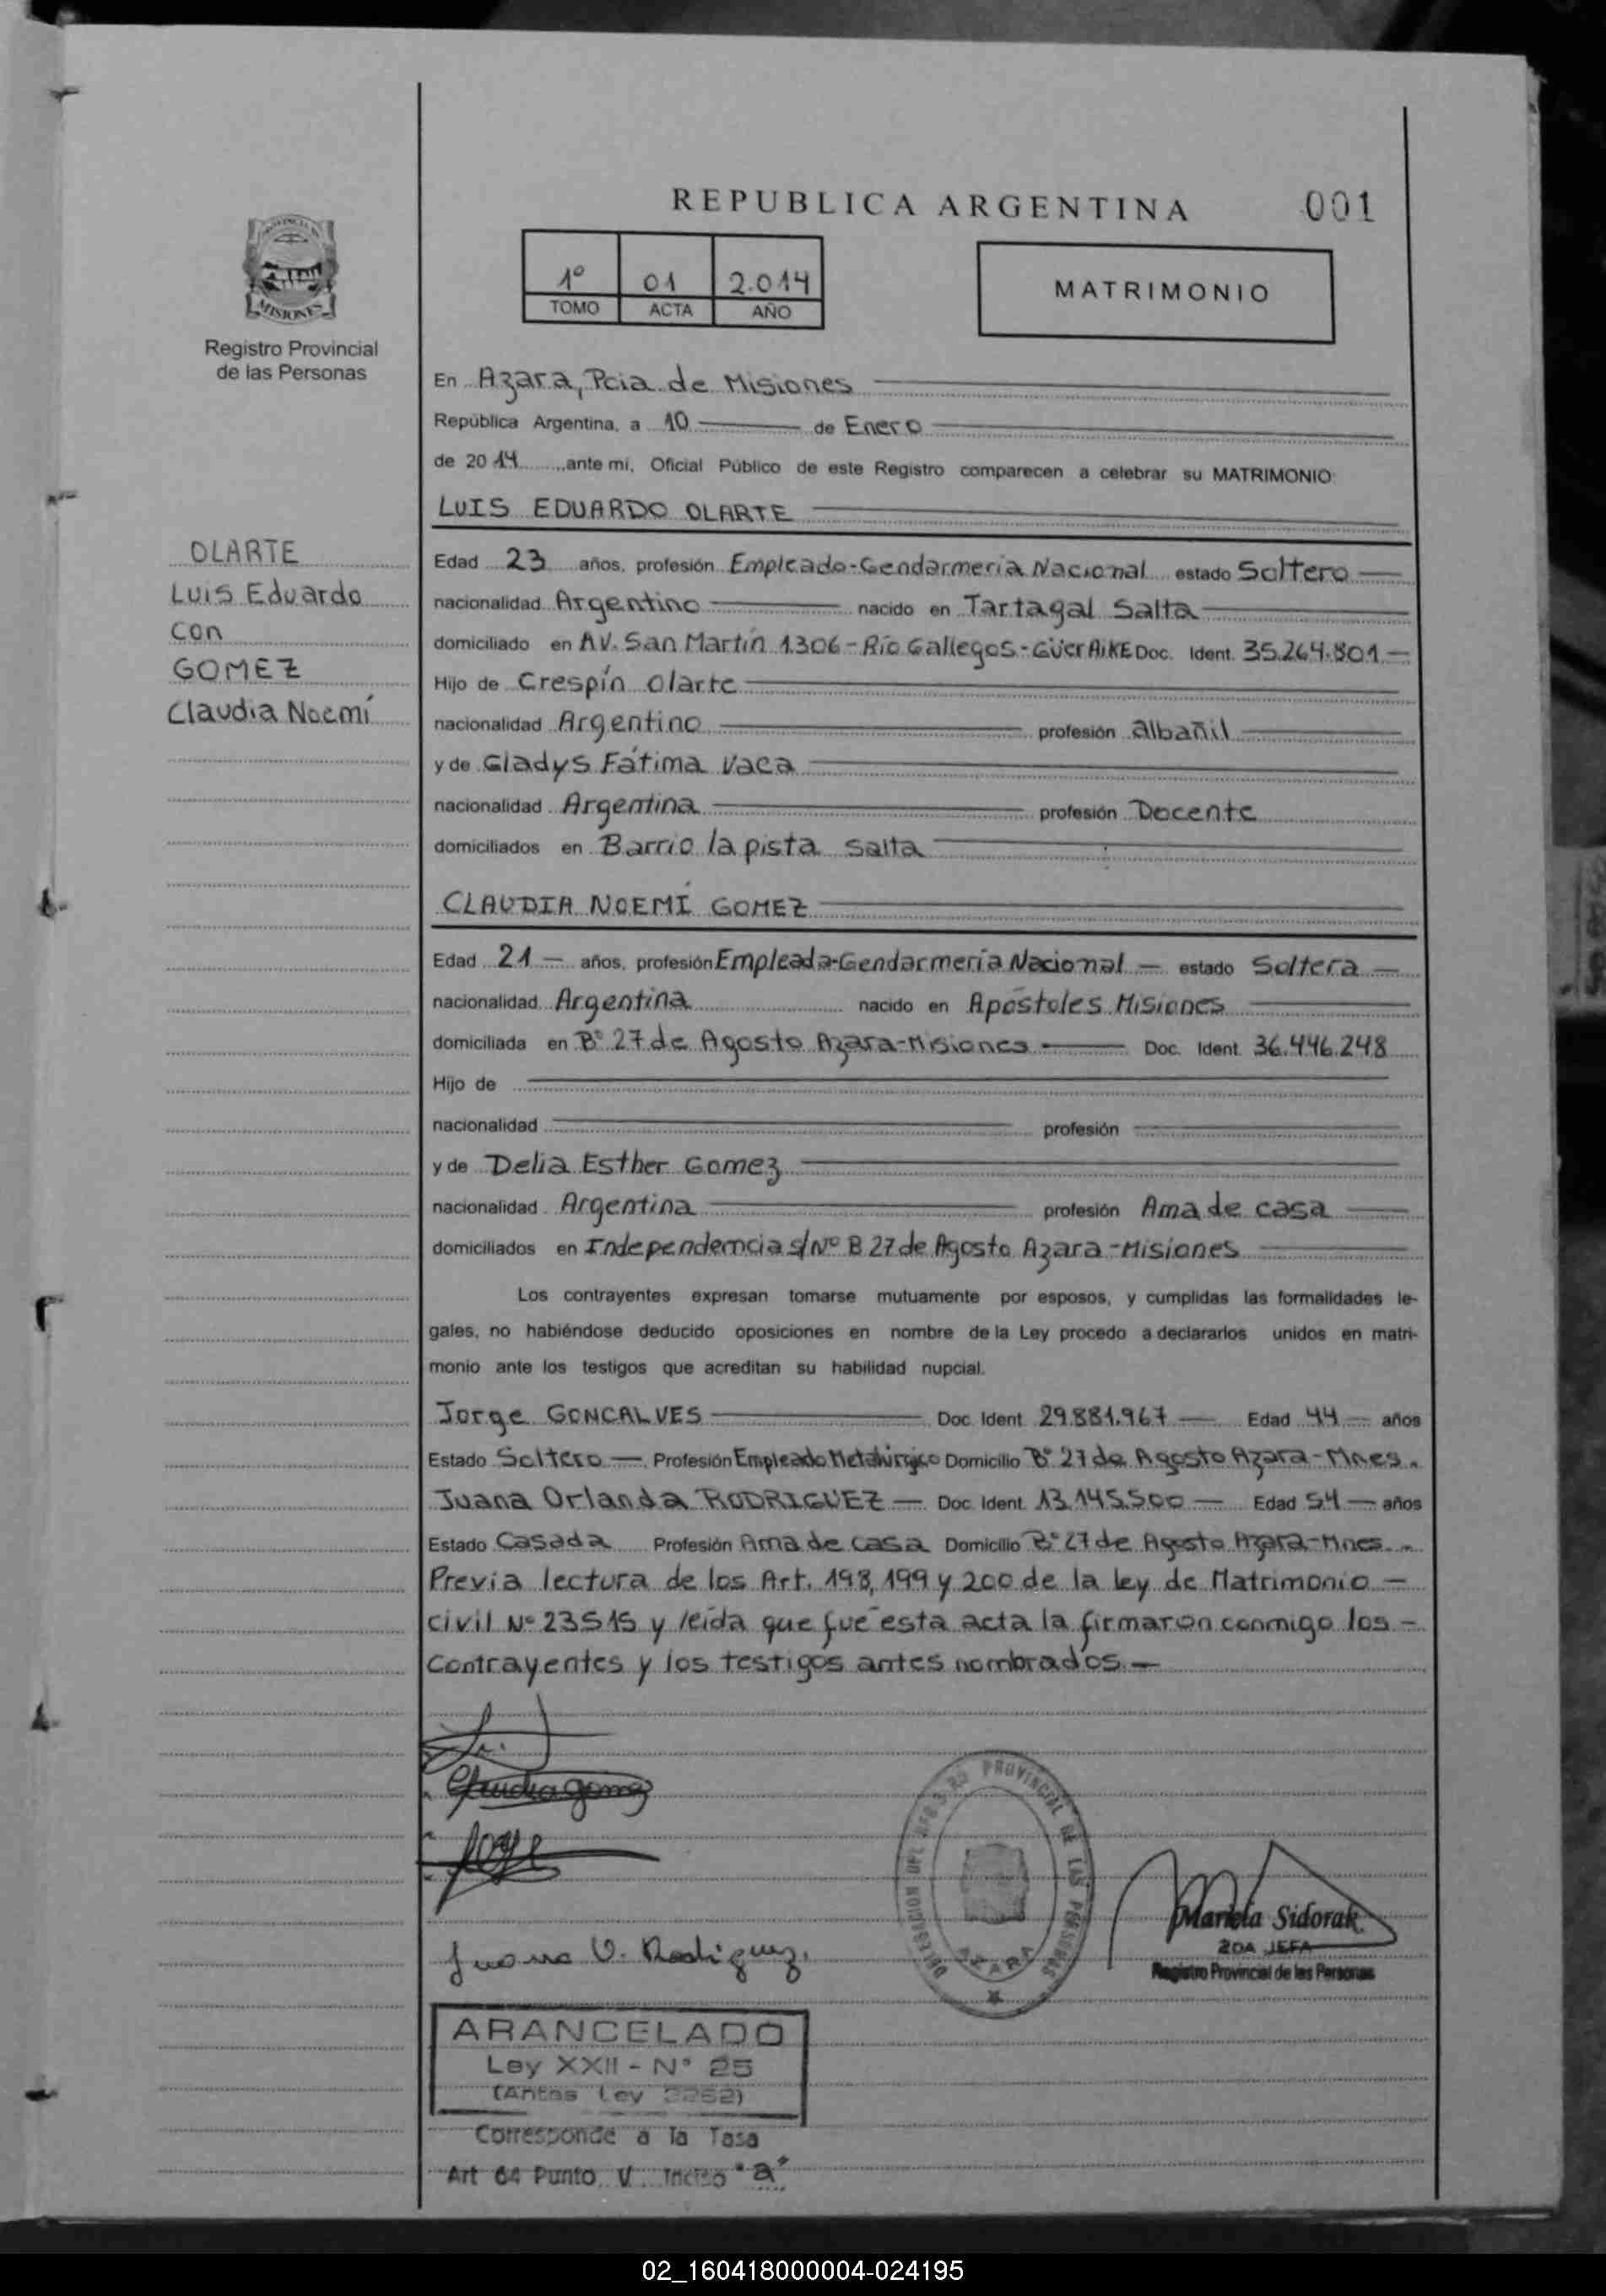 REPUBLICA ARGENTINA 001
MISIONES
Registro Provincial
de las Personas
1º 01 2.014
TOMO ACTA AÑO
MATRIMONIO
OLARTE
Luis Eduardo
con
GOMEZ
Claudia Noemí
En Azara, Pcia de Misiones
República Argentina, a 10 de Enero
de 2014 ante mi, Oficial Público de este Registro comparecen a celebrar su MATRIMONIO:
LUIS EDUARDO OLARTE
Edad 23 años, profesión Empleado-Gendarmería Nacional estado Soltero
nacionalidad Argentino nacido en Tartagal Salta
domiciliado en AV. San Martín 1306 - Río Gallegos - GüerAiKE Doc. Ident. 35.264.801.-
Hijo de Crespín Olarte
nacionalidad Argentino profesión albañil
y de Gladys Fátima Vaca
nacionalidad Argentina profesión Docente
domiciliados en Barrio la pista Salta
CLAUDIA NOEMÍ GOMEZ
Edad 21 - años, profesión Empleada-Gendarmería Nacional - estado Soltera -
nacionalidad Argentina nacido en Apóstoles Misiones
domiciliada en Bº 27 de Agosto Azara-Misiones Doc. Ident. 36.446.248
Hijo de
nacionalidad profesión
y de Delia Esther Gomez
nacionalidad Argentina profesión Ama de casa
domiciliados en Independencia s/Nº B 27 de Agosto Azara-Misiones
Los contrayentes expresan tomarse mutuamente por esposos, y cumplidas las formalidades le-
gales, no habiéndose deducido oposiciones en nombre de la Ley procedo a declararlos unidos en matri-
monio ante los testigos que acreditan su habilidad nupcial.
Jorge GONCALVES Doc. Ident. 29.881.967 - Edad 44 - años
Estado Soltero - Profesión Empleado Metalúrgico Domicilio Bº 27 de Agosto Azara-Mnes.
Juana Orlanda RODRIGUEZ - Doc. Ident. 13.145.500 - Edad 54 - años
Estado Casada Profesión Ama de casa Domicilio Bº 27 de Agosto Azara-Mnes. -
Previa lectura de los Art. 198, 199 y 200 de la ley de Matrimonio -
civil Nº 23515 y leída que fue esta acta la firmaron conmigo los -
Contrayentes y los testigos antes nombrados. -
Claudia Gomez
Jorge
Juana O. Rodriguez.
PROVINCIAL DE LAS PERSONAS
DELEGACION DEL
AZARA
Mariela Sidorak
2DA JEFA
Registro Provincial de las Personas
ARANCELADO
Ley XXII - Nº 25
(Antes Ley 3262)
Corresponde a la Tasa
Art 64 Punto V Inciso "a"
02_160418000004-024195